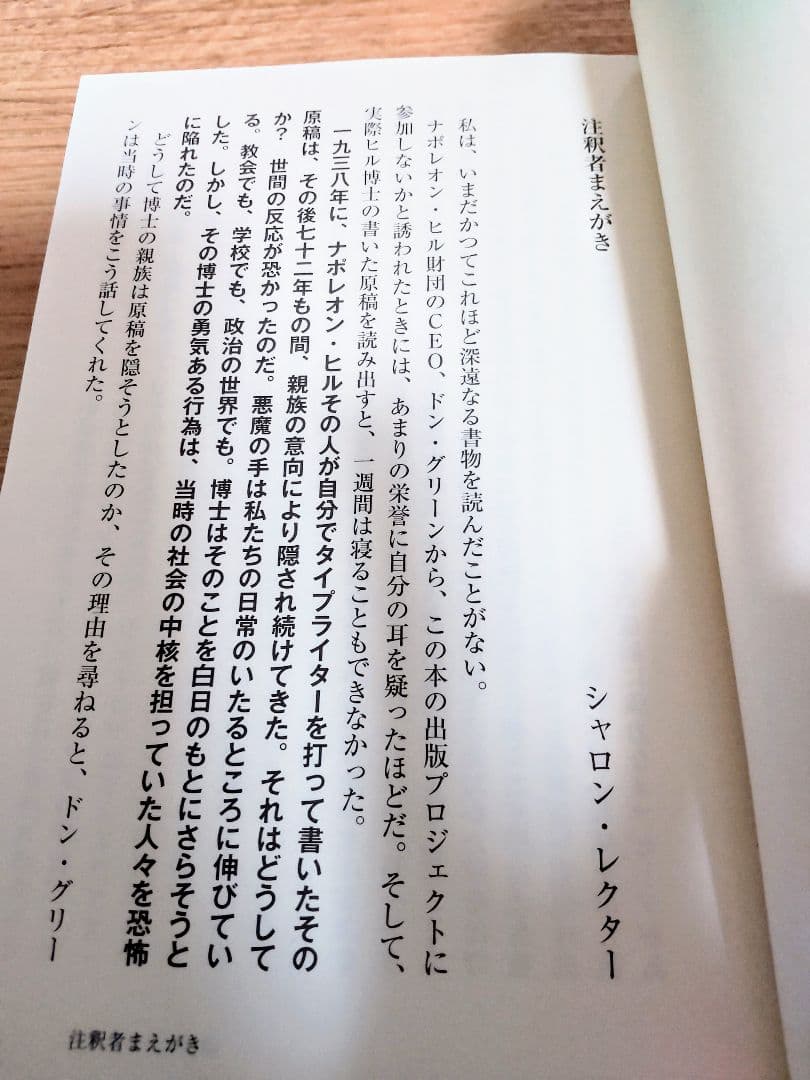 注釈者まえがき
シャロン・レクター
私は、いまだかつてこれほど深遠なる書物を読んだことがない。
ナポレオン・ヒル財団のCEO、ドン・グリーンから、この本の出版プロジェクトに
参加しないかと誘われたときには、あまりの栄誉に自分の耳を疑ったほどだ。そして、
実際ヒル博士の書いた原稿を読み出すと、一週間は寝ることもできなかった。
一九三八年に、ナポレオン・ヒルその人が自分でタイプライターを打って書いたその
原稿は、その後七十二年もの間、親族の意向により隠され続けてきた。それはどうして
か？　世間の反応が恐かったのだ。悪魔の手は私たちの日常のいたるところに伸びてい
る。教会でも、学校でも、政治の世界でも。博士はそのことを白日のもとにさらそうと
した。しかし、その博士の勇気ある行為は、当時の社会の中核を担っていた人々を恐怖
に陥れたのだ。
どうして博士の親族は原稿を隠そうとしたのか、その理由を尋ねると、ドン・グリー
ンは当時の事情をこう話してくれた。
注釈者まえがき